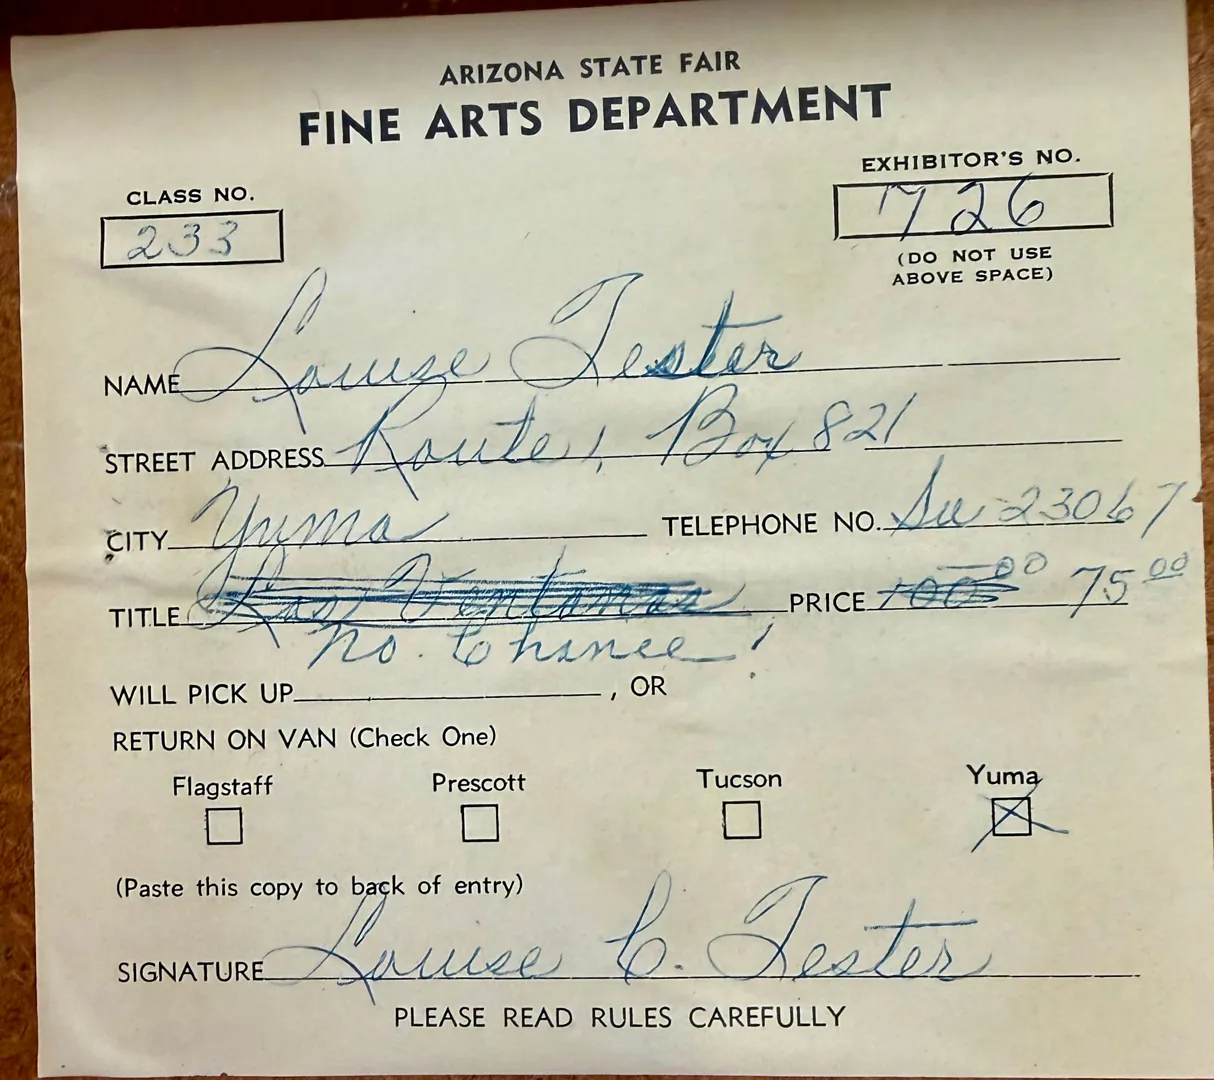 ARIZONA STATE FAIR
FINE ARTS DEPARTMENT
CLASS NO.
233
EXHIBITOR'S NO.
726
(DO NOT USE
ABOVE SPACE)
NAME Louise Tester
STREET ADDRESS Route 1, Box 821
CITY Yuma TELEPHONE NO. Su 23067
TITLE Las Ventanas PRICE 100.00 75.00
No Chance!
WILL PICK UP , OR
RETURN ON VAN (Check One)
Flagstaff Prescott Tucson Yuma
(Paste this copy to back of entry)
SIGNATURE Louise C. Tester
PLEASE READ RULES CAREFULLY